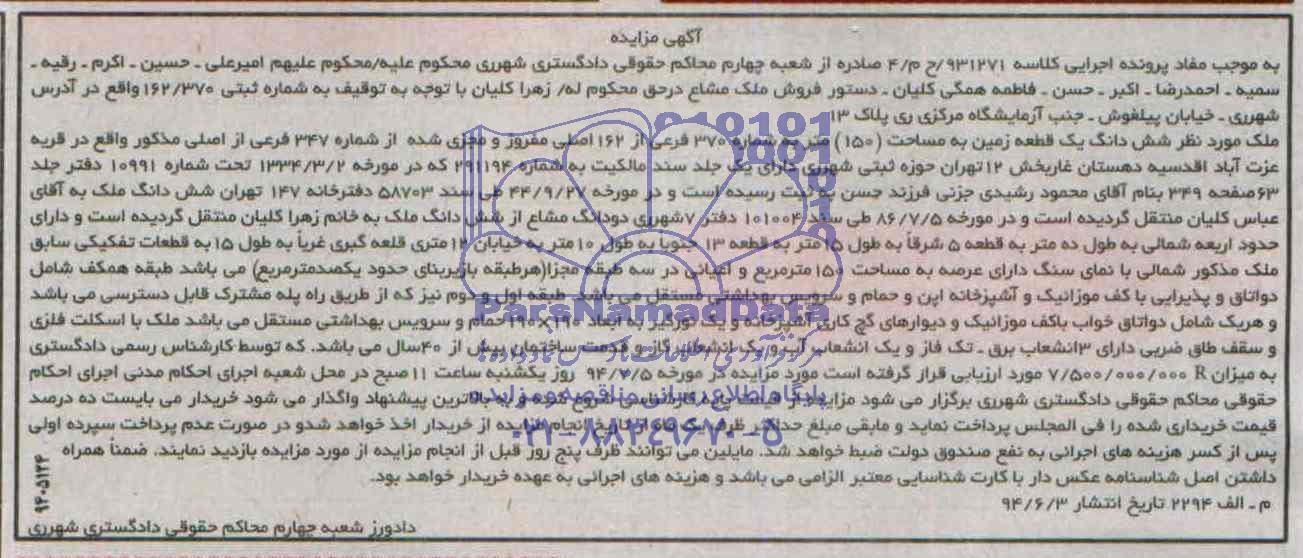 آگهی مزایده
به موجب مفاد پرونده اجرایی کلاسه ۹۳۱۲۷۱/ح م/۴ صادره از شعبه چهارم محاکم حقوقی دادگستری شهرری محکوم علیه/محکوم علیهم امیرعلی ـ حسین ـ اکرم ـ رقیه ـ
سمیه ـ احمدرضا ـ اکبر ـ حسن ـ فاطمه همگی کلیان ـ دستور فروش ملک مشاع درحق محکوم له/ زهرا کلیان با توجه به توقیف به شماره ثبتی ۱۶۲/۳۷۰ واقع در آدرس
شهرری ـ خیابان پیلغوش ـ جنب آزمایشگاه مرکزی ری پلاک ۱۳
ملک مورد نظر شش دانگ یک قطعه زمین به مساحت (۱۵۰) متر به شماره ۳۷۰ فرعی از ۱۶۲ اصلی مفروز و مجزی شده از شماره ۳۴۷ فرعی از اصلی مذکور واقع در قریه
عزت آباد اقدسیه دهستان غاربخش ۱۲تهران حوزه ثبتی شهرری دارای یک جلد سند مالکیت به شماره ۲۹۱۱۹۴ که در مورخه ۱۳۳۴/۳/۲ تحت شماره ۱۰۹۹۱ دفتر جلد
۶۳صفحه ۳۴۹ بنام آقای محمود رشیدی جزنی فرزند حسن به ثبت رسیده است و در مورخه ۴۴/۹/۲۷ طی سند ۵۸۷۰۳ دفترخانه ۱۴۷ تهران شش دانگ ملک به آقای
عباس کلیان منتقل گردیده است و در مورخه ۸۶/۷/۵ طی سند ۱۰۱۰۰۴ دفتر ۷شهرری دودانگ مشاع از شش دانگ ملک به خانم زهرا کلیان منتقل گردیده است و دارای
حدود اربعه شمالی به طول ده متر به قطعه ۵ شرقاً به طول ۱۵ متر به قطعه ۱۳ جنوبا به طول ۱۰ متر به خیابان ۱۲ متری قلعه گبری غرباً به طول ۱۵ به قطعات تفکیکی سابق
ملک مذکور شمالی با نمای سنگ دارای عرصه به مساحت ۱۵۰ مترمربع و اعیانی در سه طبقه مجزا(هرطبقه بازیربنای حدود یکصدمترمربع) می باشد طبقه همکف شامل
دواتاق و پذیرایی با کف موزائیک و آشپزخانه اپن و حمام و سرویس بهداشتی مستقل می باشد طبقه اول و دوم نیز که از طریق راه پله مشترک قابل دسترسی می باشد
و هریک شامل دواتاق خواب باکف موزائیک و دیوارهای گچ کاری آشپزخانه و یک نورگیر به ابعاد ۱۹۰×۱۹۰ حمام و سرویس بهداشتی مستقل می باشد ملک با اسکلت فلزی
و سقف طاق ضربی دارای ۳انشعاب برق ـ تک فاز و یک انشعاب آب و یک انشعاب گاز و قدمت ساختمان بیش از ۴۰سال می باشد. که توسط کارشناس رسمی دادگستری
به میزان R ۷/۵۰۰/۰۰۰/۰۰۰ مورد ارزیابی قرار گرفته است مورد مزایده در مورخه ۹۴/۷/۵ روز یکشنبه ساعت ۱۱ صبح در محل شعبه اجرای احکام مدنی اجرای احکام
حقوقی محاکم حقوقی دادگستری شهرری برگزار می شود مزایده از قیمت پایه کارشناسی شروع شده و به بالاترین پیشنهاد واگذار می شود خریدار می بایست ده درصد
قیمت خریداری شده را فی المجلس پرداخت نماید و مابقی مبلغ حداکثر ظرف یک ماه از تاریخ انجام مزایده از خریدار اخذ خواهد شدو در صورت عدم پرداخت سپرده اولی
پس از کسر هزینه های اجرائی به نفع صندوق دولت ضبط خواهد شد. مایلین می توانند ظرف پنج روز قبل از انجام مزایده از مورد مزایده بازدید نمایند. ضمناً همراه
داشتن اصل شناسنامه عکس دار با کارت شناسایی معتبر الزامی می باشد و هزینه های اجرائی به عهده خریدار خواهد بود.
م ـ الف ۲۲۹۴ تاریخ انتشار ۹۴/۶/۳
دادورز شعبه چهارم محاکم حقوقی دادگستری شهرری
۹۴۰۵۱۲۴
ParsNamadData
پایگاه اطلاع رسانی مناقصه و مزایده
۰۲۱-۸۸۳۴۹۶۷۰-۵